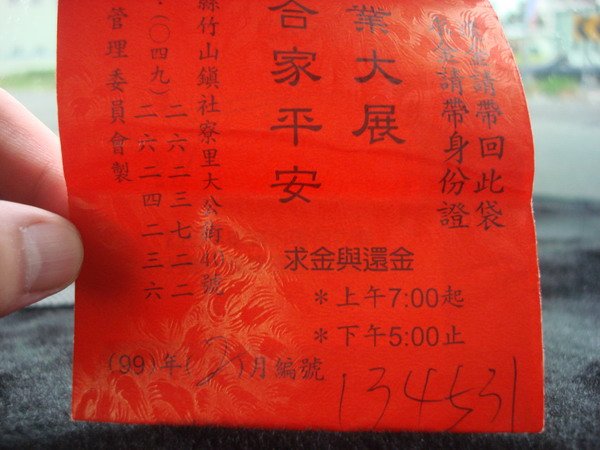 金請帶回此袋
金請帶身份證
業大展
合家平安
求金與還金
*上午7:00起
*下午5:00止
縣竹山鎮社寮里大公街40號
二六二三七二二
(〇四九)二六二四二三六
管理委員會製
(99)年(2)月編號 134531